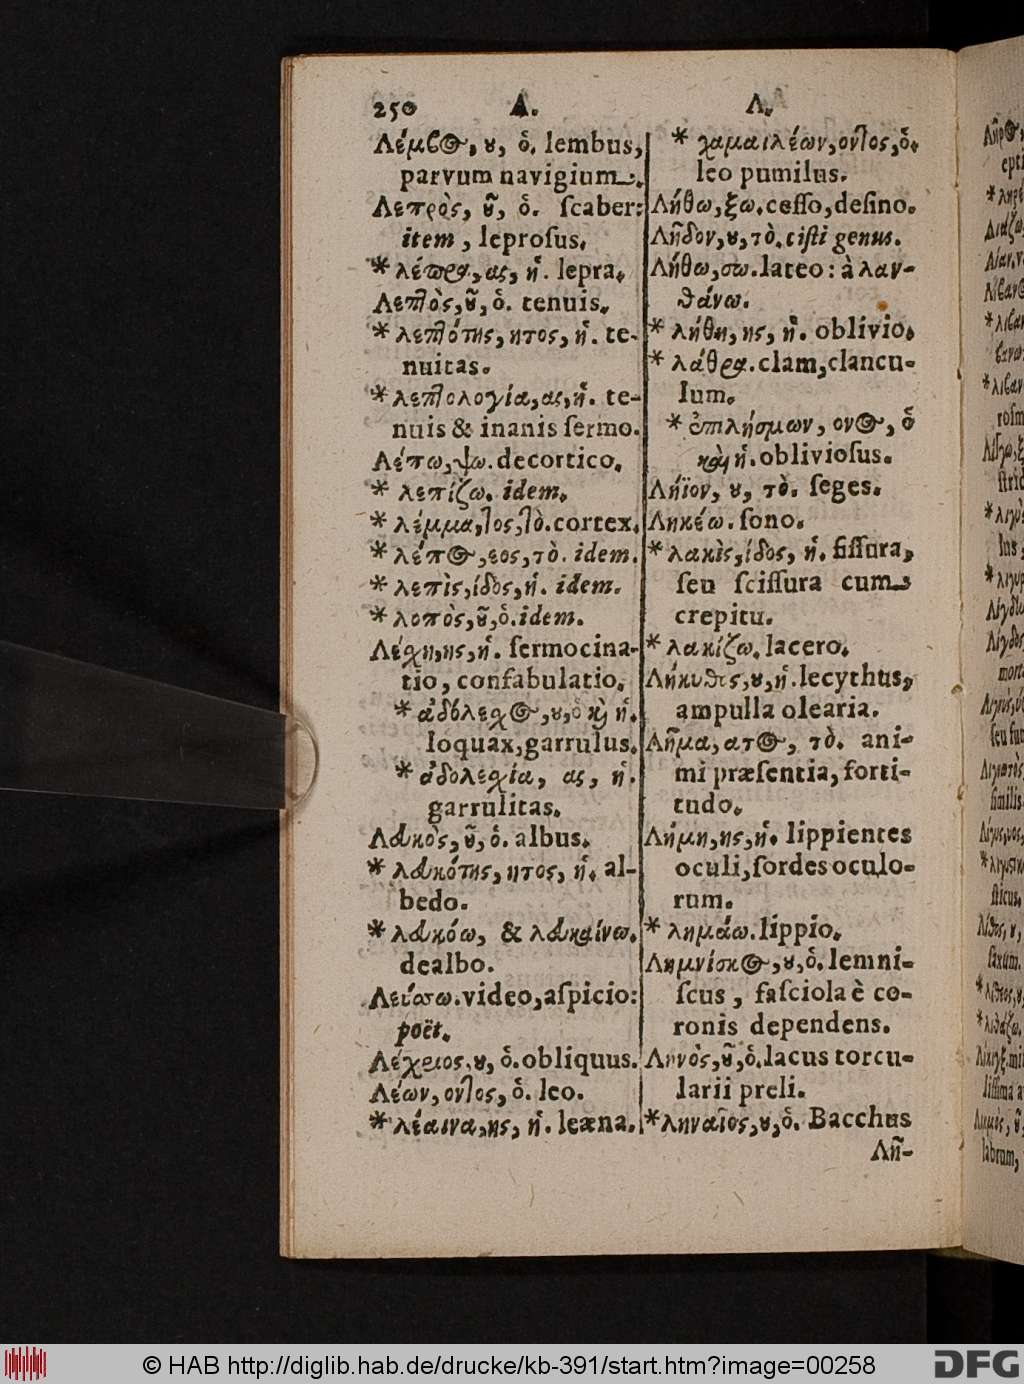 250 Λ. Λ.
Λέμβος, ου, ὁ. lembus,
parvum navigium.
Λεπρὸς, οῦ, ὁ. ſcaber:
item, leproſus.
* λέπρα, ας, ἡ. lepra.
Λεπτὸς, οῦ, ὁ. tenuis.
* λεπτότης, ητος, ἡ. te-
nuitas.
* λεπτολογία, ας, ἡ. te-
nuis & inanis ſermo.
Λέπω, ψω. decortico.
* λεπίζω. idem.
* λέμμα, τος, τὸ. cortex.
* λέπος, εος, τὸ. idem.
* λεπὶς, ίδος, ἡ. idem.
* λοπὸς, οῦ, ὁ. idem.
Λέχη, ης, ἡ. ſermocina-
tio, confabulatio.
* ἀδόλεχος, ου, ὁ καὶ ἡ.
loquax, garrulus.
* ἀδολεχία, ας, ἡ.
garrulitas.
Λευκὸς, οῦ, ὁ. albus.
* λευκότης, ητος, ἡ. al-
bedo.
* λευκόω, & λευκαίνω.
dealbo.
Λεύσσω. video, aſpicio:
poët.
Λέχριος, ου, ὁ. obliquus.
Λέων, οντος, ὁ. leo.
* λέαινα, ης, ἡ. leæna.
* χαμαιλέων, οντος, ὁ.
leo pumilus.
Λήθω, ξω. ceſſo, deſino.
Λῆδον, ου, τὸ. ciſti genus.
Λήθω, σω. lateo: à λαν-
θάνω.
* λήθη, ης, ἡ. oblivio.
* λάθρα. clam, clancu-
lum.
* ἐπιλήσμων, ονος, ὁ
καὶ ἡ. oblivioſus.
Λήϊον, ου, τὸ. ſeges.
Ληκέω. ſono.
* λακὶς, ίδος, ἡ. fiſſura,
ſeu ſciſſura cum
crepitu.
* λακίζω. lacero.
Λήκυθος, ου, ἡ. lecythus,
ampulla olearia.
Λῆμα, ατος, τὸ. ani-
mi præſentia, forti-
tudo.
Λήμη, ης, ἡ. lippientes
oculi, ſordes oculo-
rum.
* λημάω. lippio.
Λημνίσκος, ου, ὁ. lemni-
ſcus, faſciola è co-
ronis dependens.
Ληνὸς, οῦ, ὁ. lacus torcu-
larii preli.
* ληναῖος, ου, ὁ. Bacchus
Λῆ-
© HAB http://diglib.hab.de/drucke/kb-391/start.htm?image=00258
DFG